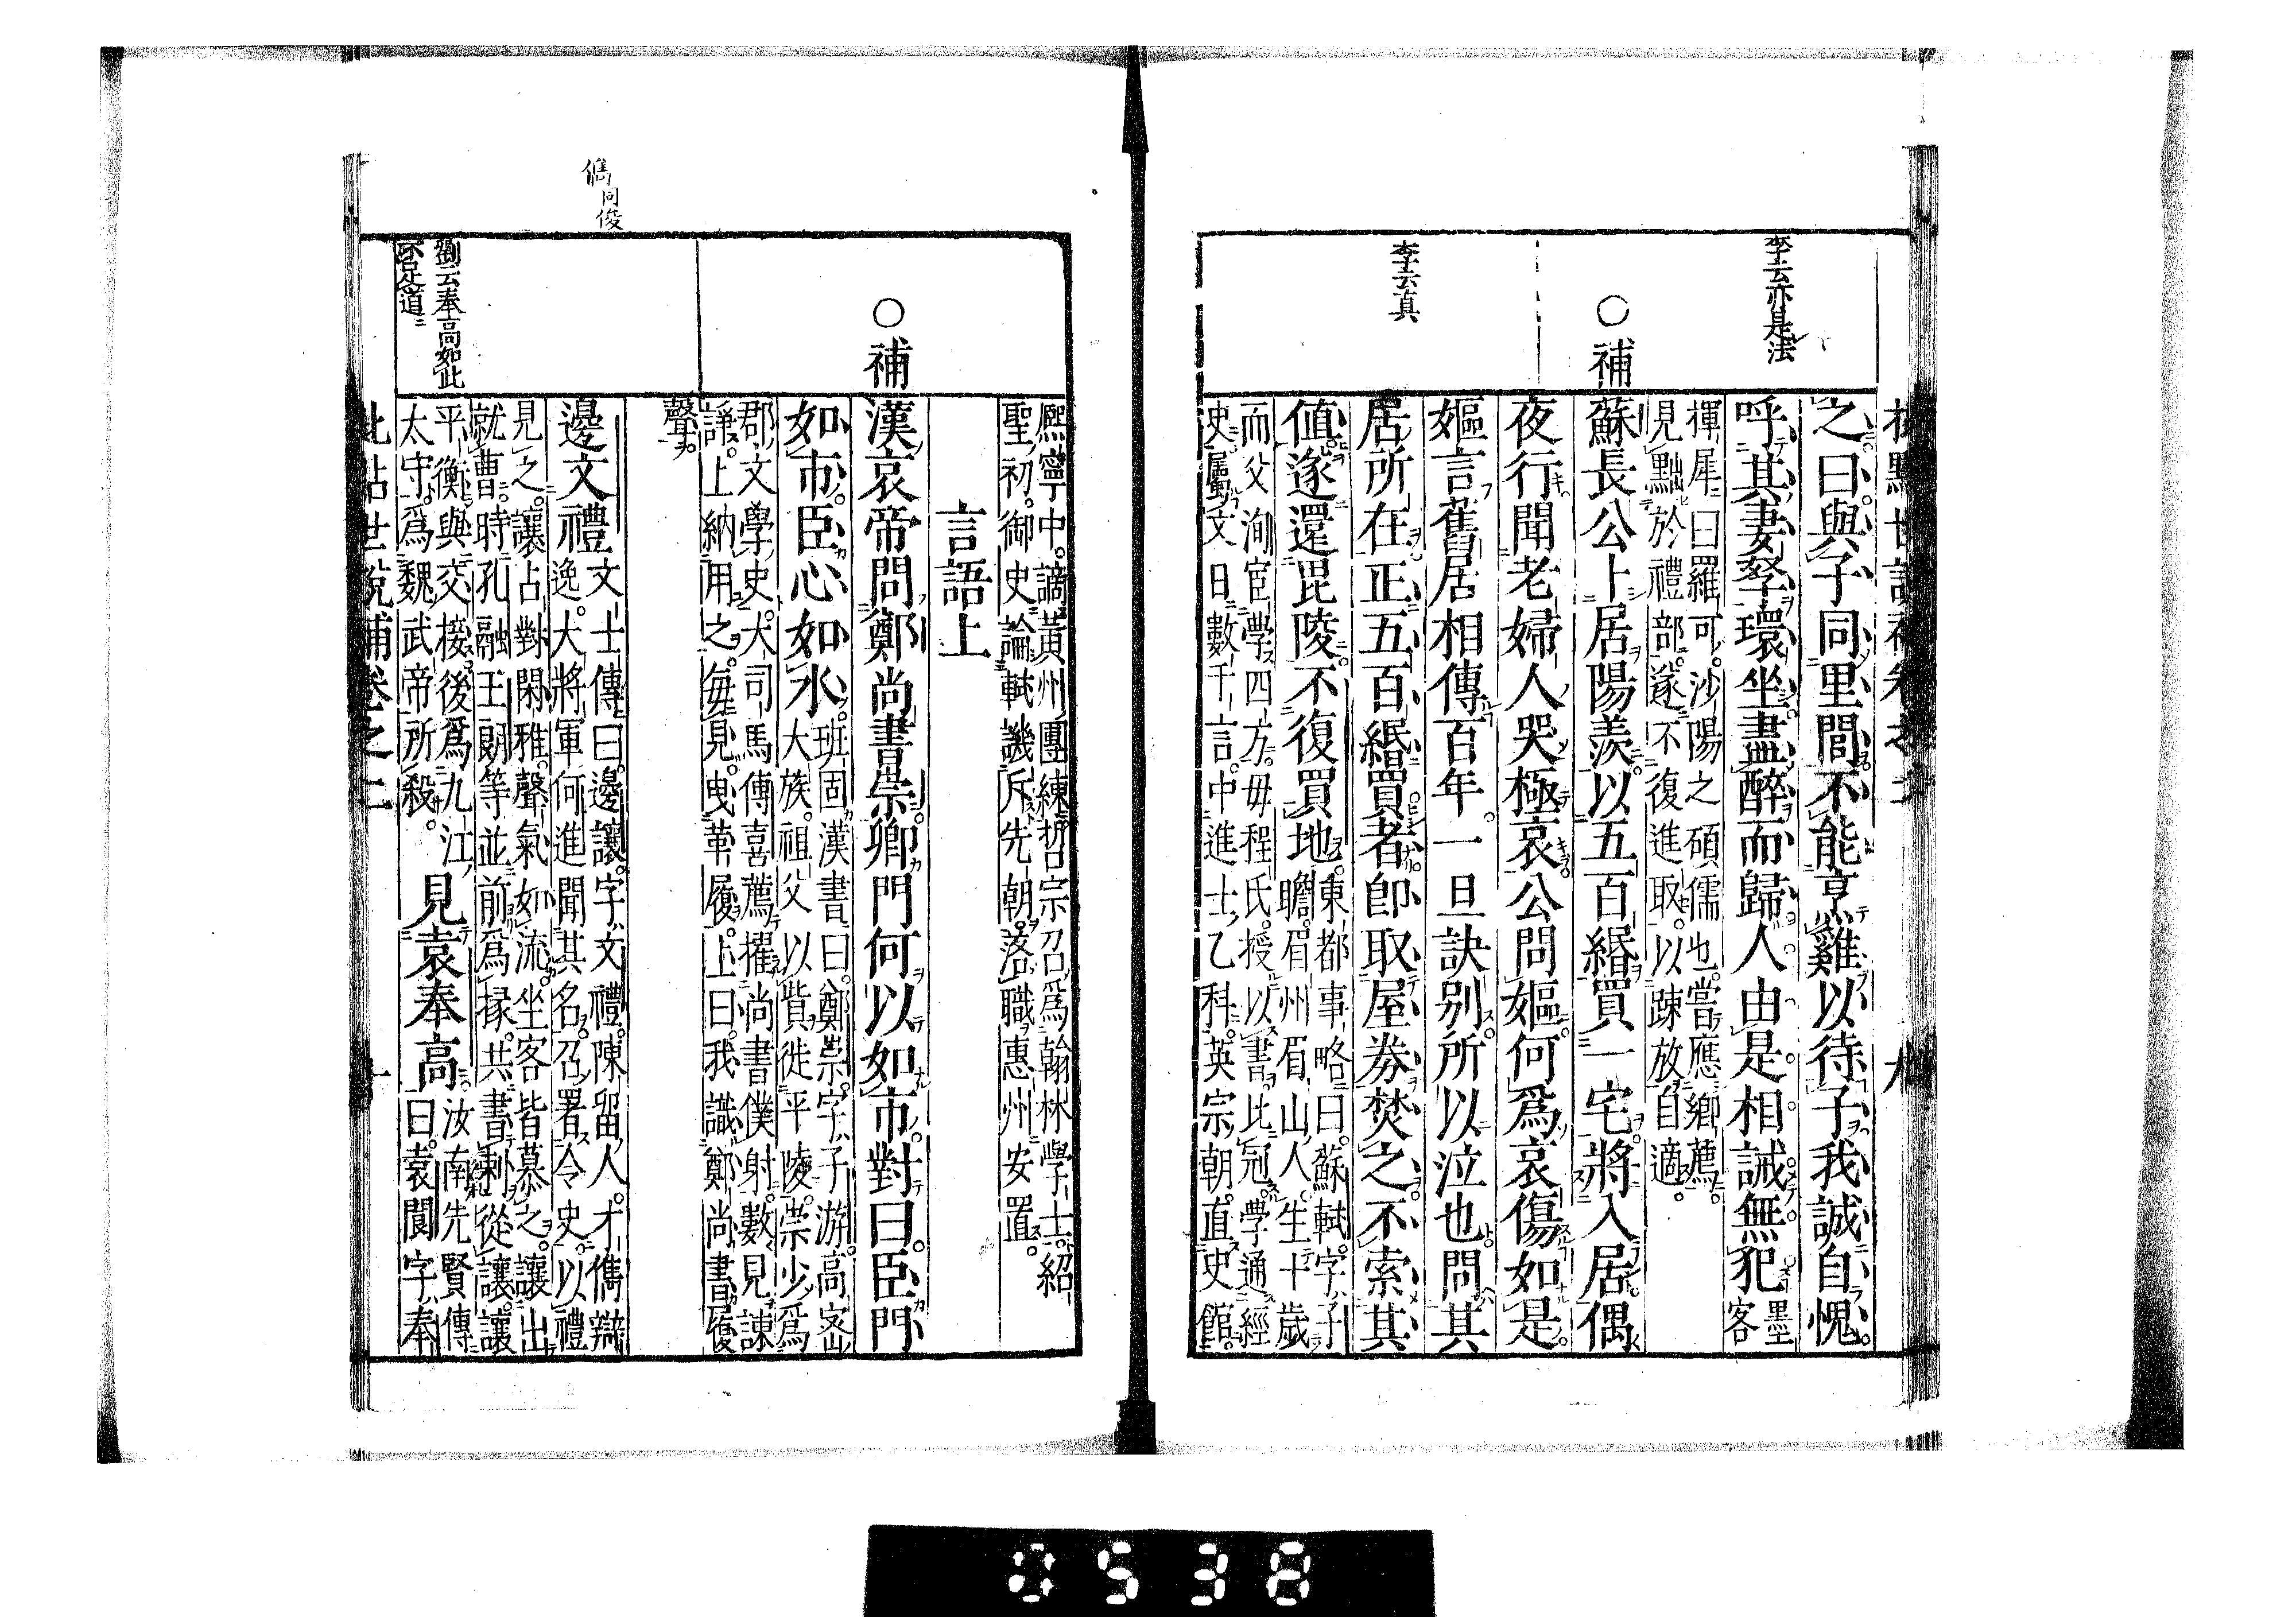 李云亦是法
李云真
之曰與子同里閈不能烹雞以待子我誠自愧
呼其妻孥環坐盡醉而歸人由是相誡無犯墨客
揮犀曰羅可沙陽之碩儒也嘗應鄉薦
見黜於禮部遂不復進取以踈放自適
○補蘇長公卜居陽羨以五百緡買一宅將入居偶
夜行聞老婦人哭極哀公問嫗何爲哀傷如是
嫗言舊居相傳百年一旦訣別所以泣也問其
居所在正五百緡買者卽取屋券焚之不索其
値遂還毘陵不復買地東都事略曰蘇軾字子
瞻眉州眉山人生十歲
而父洵宦學四方毋程氏授以書比冠學通經
史屬文日數千言中進士乙科英宗朝直史館
熙寧中謫黃州團練哲宗召爲翰林學士紹
聖初御史論軾譏斥先朝落職惠州安置
言語上
○補漢哀帝問鄭尚書崇卿門何以如市對曰臣門
如市臣心如水班固漢書曰鄭崇字子游高密
大族祖父以貲徙平陵崇少爲
郡文學史大司馬傅喜薦擢尚書僕射數見諫
諍上納用之每見曳革履上曰我識鄭尚書履
聲
邊文禮文士傳曰邊讓字文禮陳留人才儁辯
逸大將軍何進聞其名召署令史以禮
見之讓占對閑雅聲氣如流坐客皆慕之讓出
就曹時孔融王朗等並前爲掾共書刺從讓讓
平衡與交接後爲九江
太守爲魏武帝所殺
見袁奉高汝南先賢傳
曰袁閬字奉
儁同俊
劉云奉高如此
不足道
批點世說補卷之二
十